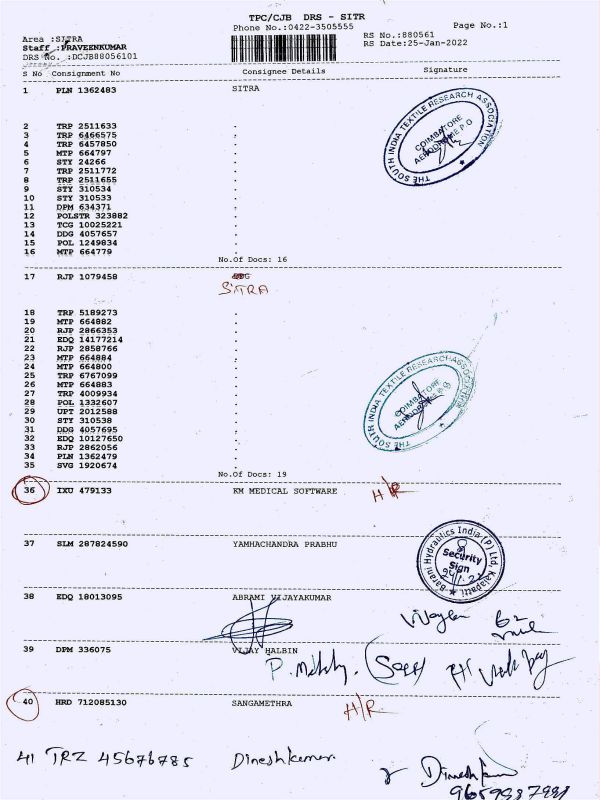 TPC/CJB DRS - SITR
Phone No.:0422-3505555
Page No.:1
Area :SITRA
RS No.:880561
Staff :PRAVEENKUMAR
RS Date:25-Jan-2022
DRS No. :DCJB88056101
S No Consignment No Consignee Details Signature
1 PLN 1362483 SITRA
THE SOUTH INDIA TEXTILE RESEARCH ASSOCIATION
COIMBATORE
AERODROME P.O
2 TRP 2511633 .
3 TRP 6466575 .
4 TRP 6457850 .
5 MTP 664797 .
6 STY 24266 .
7 TRP 2511772 .
8 TRP 2511655 .
9 STY 310534 .
10 STY 310533 .
11 DPM 634371 .
12 POLSTR 323882 .
13 TCG 10025221 .
14 DDG 4057657 .
15 POL 1249834 .
16 MTP 664779 .
No.Of Docs: 16
17 RJP 1079458
SITRA
18 TRP 5189273 .
19 MTP 664882 .
20 RJP 2866353 .
21 EDQ 14177214 .
22 RJP 2858766 .
23 MTP 664884 .
24 MTP 664800 .
25 TRP 6767099 .
26 MTP 664883 .
27 TRP 4009934 .
28 POL 1332607 .
29 UPT 2012588 .
30 STY 310538 .
31 DDG 4057695 .
32 EDQ 10127650 .
33 RJP 2862056 .
34 PLN 1362479 .
35 SVG 1920674 .
THE SOUTH INDIA TEXTILE RESEARCH ASSOCIATION
COIMBATORE
AERODROME P.O
No.Of Docs: 19
36 IXU 479133 KM MEDICAL SOFTWARE H/R
37 SLM 287824590 YAMHACHANDRA PRABHU
Barani Hydraulics India (P) Ltd, Kalapatti
Security
Sign
38 EDQ 18013095 ABRAMI VIJAYKUMAR
39 DPM 336075 VIJAY HALBIN
40 HRD 712085130 SANGAMETHRA H/R
41 TRZ 45676785 Dineshkumar
Dineshkumar